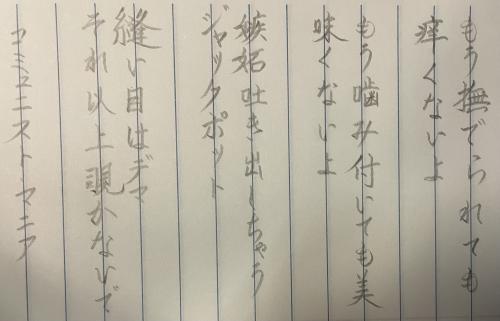 もう撫でられても
痒くないよ
もう噛み付いても美
味くないよ
嫉妬吐き出しちゃう
ジャックポット
縫い目はデマ
それ以上覗かないで
コミュニスト・マニア